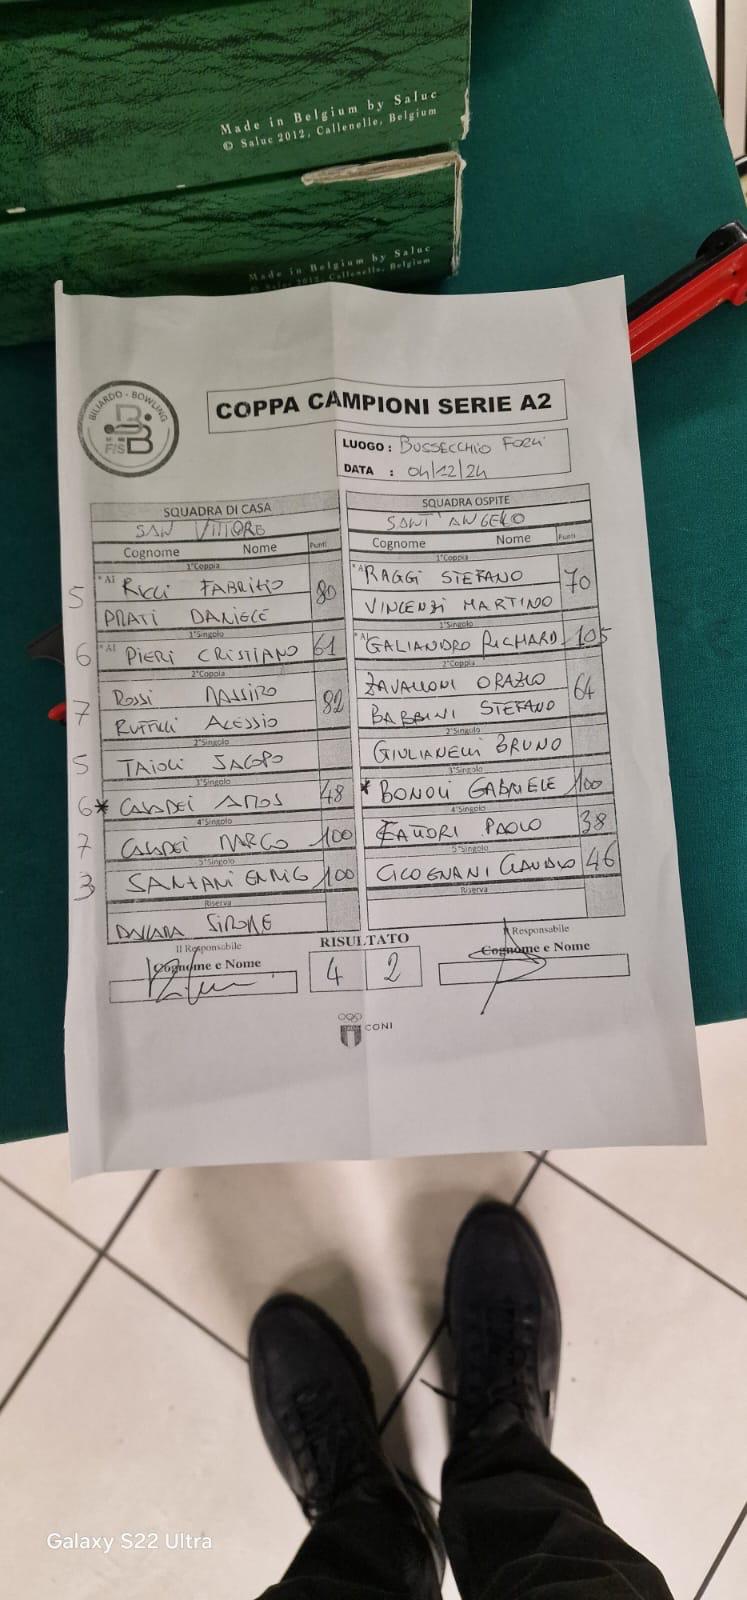 Made in Belgium by Saluc
© Saluc 2012, Callenelle, Belgium
Made in Belgium by Saluc
© Saluc 2012, Callenelle, Belgium
BILIARDO - BOWLING
FISBB
COPPA CAMPIONI SERIE A2
LUOGO : BUSSECCHIO FORLI'
DATA : 04/12/24
SQUADRA DI CASA
SAN VITTORE
Cognome Nome Punti
1°Coppia
5 *A1 RICCI FABRIZIO 80
PRATI DANIELE
1°Singolo
6 *A1 PIERI CRISTIANO 61
2°Coppia
7 ROSSI MASSIMO 82
ALESSIO
2°Singolo
5 TAIOLI JACOPO
3°Singolo
6 * CASADEI AMOS 48
4°Singolo
7 CASADEI MARCO 100
5°Singolo
3 SANTANI ENRICO 100
Riserva
SIMONE
Il Responsabile
Cognome e Nome
SQUADRA OSPITE
SANT'ANGELO
Cognome Nome Punti
1°Coppia
*A RAGGI STEFANO 70
VINCENZI MARTINO
1°Singolo
*A GALIANDRO RICHARD 105
2°Coppia
ZAVALLONI ORAZIO 64
BABBINI STEFANO
2°Singolo
GIULIANELLI BRUNO
3°Singolo
* BONOLI GABRIELE 100
4°Singolo
FATTORI PAOLO 38
5°Singolo
CICOGNANI CLAUDIO 46
Riserva
Il Responsabile
Cognome e Nome
RISULTATO
4 2
CONI
Galaxy S22 Ultra